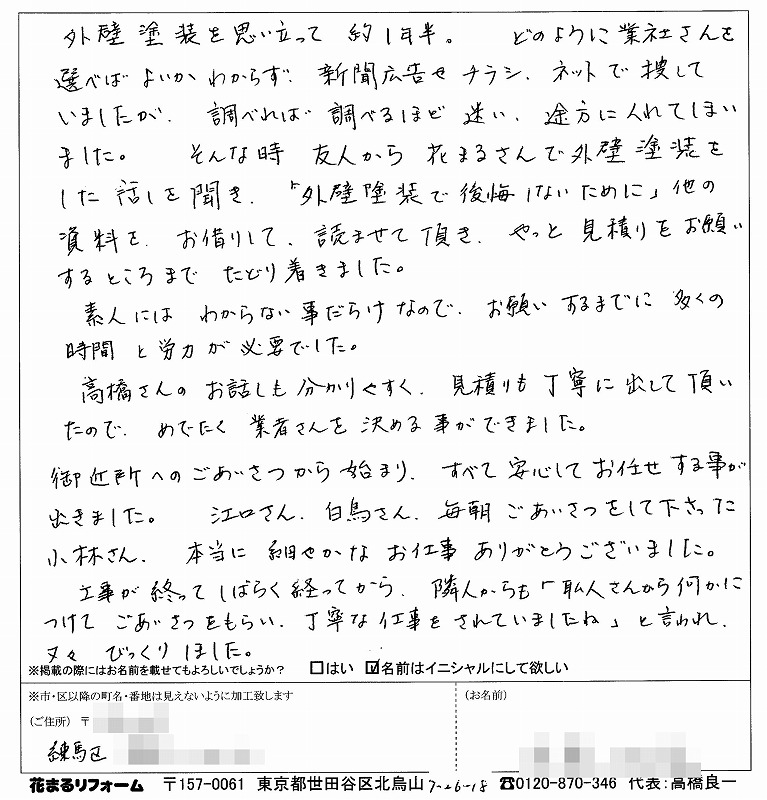 外壁塗装を思い立って 約1年半。 どのように業社さんを
選べばよいかわからず、新聞広告やチラシ、ネットで捜して
いましたが、調べれば調べるほど迷い、途方に入れてしまい
ました。 そんな時 友人から 花まるさんで外壁塗装を
した話しを聞き、「外壁塗装で後悔しないために」他の
資料を、お借りして、読ませて頂き、やっと見積りをお願い
するところまで たどり着きました。
素人には わからない事だらけなので、お願いするまでに多くの
時間と労力が必要でした。
高橋さんのお話しも分かりやすく、見積りも丁寧に出して頂い
たので、めでたく業者さんを決める事ができました。
御近所へのごあいさつから始まり、すべて安心してお任せする事が
出きました。 江口さん、白鳥さん、毎朝ごあいさつをして下さった
小林さん、本当に細やかなお仕事ありがとうございました。
工事が終ってしばらく経ってから、隣人からも「職人さんから何かに
つけて ごあいさつをもらい、丁寧な仕事をされていましたね」と言われ、
又々 びっくりました。
※掲載の際にはお名前を載せてもよろしいでしょうか？ □はい ☑名前はイニシャルにして欲しい
※市・区以降の町名・番地は見えないように加工致します
(ご住所) 〒
練馬区
(お名前)
花まるリフォーム 〒157-0061 東京都世田谷区北烏山7-26-18 ☎0120-870-346 代表:高橋良一